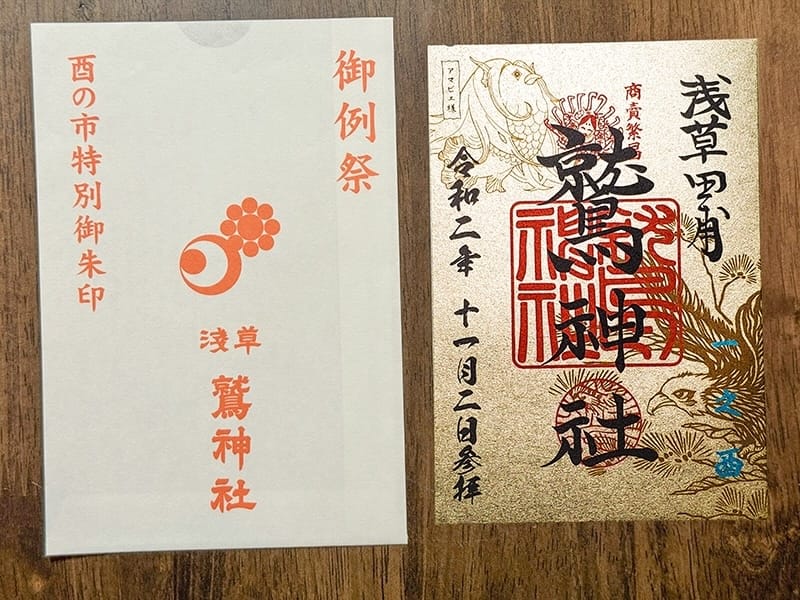 御例祭
酉の市特別御朱印
淺草
鷲神社
浅草田甫
商賣繁昌
アマビエ様
鷲神社
一之酉
令和二年 十一月二日参拝